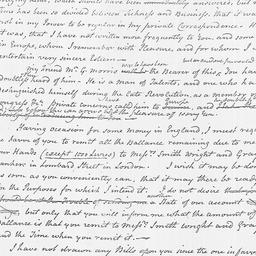 sure have been immediately answered, but
time has been so divided between Sickness and Business, that it was
not in my Power to be regular in my private Correspondence.
it was, that I have not written more frequently to You, and some
in Europe, whom I remember with Pleasure, and for whom I
entertain very sincere Esteem—
my friend Mr. G Morris the Bearer of this, You have
Doubtless heard of him. He is a man of Talents, and one who has
Distinguished himself during the late Revolution, as a member of
Congress &c. private concerns
the pleasure of seeing You.
Having occasion for some money in England, I must request
the favor of you to remit all the Ballance remaining due to me
in your Hands (except 100 Livres) to Messrs. Smith Wright and Gray
Bankers in Lombard Street in London. I wish it may be done
as soon as you conveniently can, that it may there be ready
for the Purposes for which I intend it. I do not desire
a State of our account
but only that you will inform me what the amount of
Ballance is that you remit to Messrs. Smith Wright and Gray
and the Time when you remit it.—
I have not drawn any Bills upon you since the one in favor